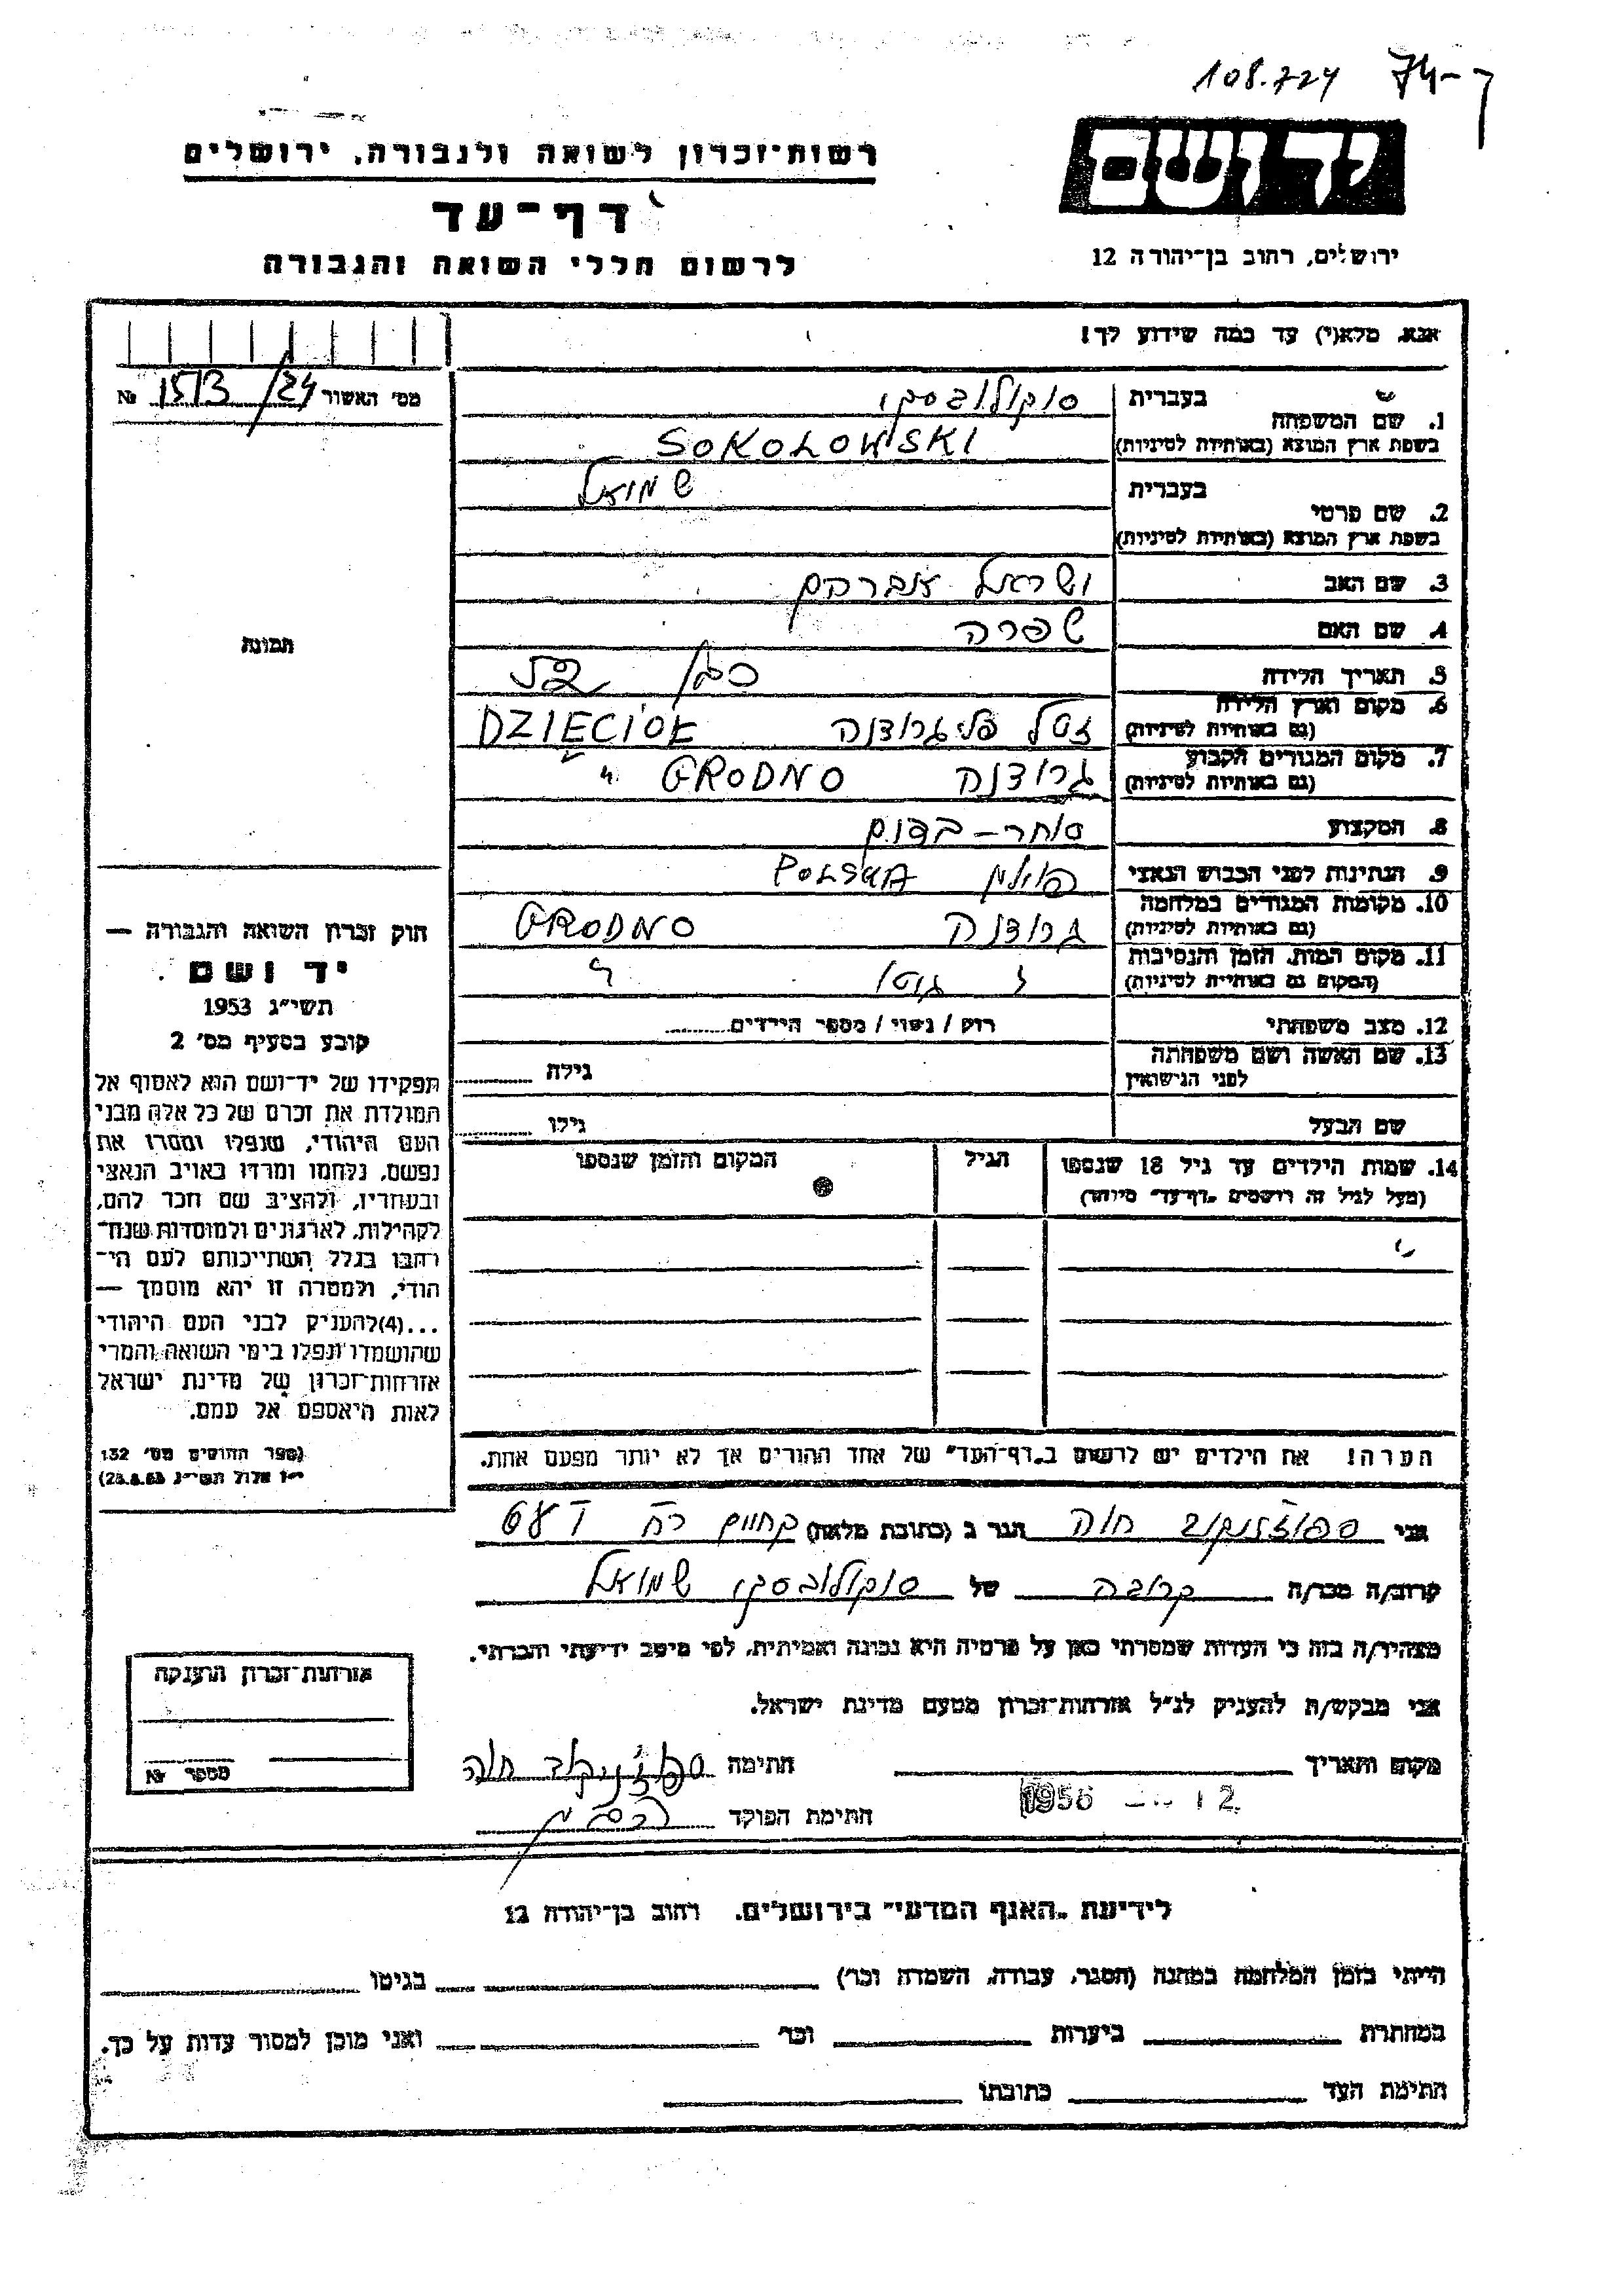 108.724 74-
יד ושם
רשות-זכרון לשואה ולגבורה, ירושלים
דף-עד
לרשום חללי השואה והגבורה
ירושלים, רחוב בן-יהודה 12
אנא, מלא(י) עד כמה שידוע לך!
מס׳ האשור № 1513/24
1. שם המשפחה בעברית סוקולובסקי
בשפת ארץ המוצא (באותיות לטיניות) SOKOLOWSKI
2. שם פרטי בעברית שמואל
בשפת ארץ המוצא (באותיות לטיניות)
3. שם האב ישראל אברהם
4. שם האם שפרה
תמונה
5. תאריך הלידה בגן
6. מקום וארץ הלידה
(גם באותיות לטיניות) גרודנה DZIECIOŁ
7. מקום המגורים הקבוע
(גם באותיות לטיניות) גרודנה GRODNO
8. המקצוע סוחר-
9. הנתינות לפני הכבוש הנאצי פולין POLSKA
10. מקומות המגורים במלחמה
(גם באותיות לטיניות) גרודנה GRODNO
11. מקום המות, הזמן והנסיבות
(המקום גם באותיות לטיניות) גטו
12. מצב משפחתי רוק / נשוי / מספר הילדים
13. שם האשה ושם משפחתה
לפני הנישואין גילה
שם הבעל גילו
14. שמות הילדים עד גיל 18 שנספו הגיל המקום והזמן שנספו
(מעל לגיל זה רושמים „דף-עד״ מיוחד)
הערה! את הילדים יש לרשום ב„דף-העד״ של אחד ההורים אך לא יותר מפעם אחת.
חוק זכרון השואה והגבורה —
יד ושם
תשי״ג 1953
קובע בסעיף מס׳ 2
תפקידו של יד-ושם הוא לאסוף אל
המולדת את זכרם של כל אלה מבני
העם היהודי, שנפלו ומסרו את
נפשם, נלחמו ומרדו באויב הנאצי
ובעוזריו, ולהציב שם וזכר להם,
לקהילות, לארגונים ולמוסדות שנח-
רבו בגלל השתייכותם לעם הי-
הודי, ולמטרה זו יהא מוסמך —
...(4)להעניק לבני העם היהודי
שהושמדו ונפלו בימי השואה והמרי
אזרחות-זכרון של מדינת ישראל
לאות היאספם אל עמם.
(ספר החוקים מס׳ 132
י״ז אלול תשי״ג 28.8.53)
אני חוה הגר ב (כתובת מלאה)
קרוב/ה מכר/ה קרובה של סוקולובסקי שמואל
מצהיר/ה בזה כי העדות שמסרתי כאן על פרטיה היא נכונה ואמיתית, לפי מיטב ידיעתי והכרתי.
אני מבקש/ת להעניק לנ״ל אזרחות-זכרון מטעם מדינת ישראל.
מקום ותאריך חתימה חוה
1956 12
חתימת הפוקד
אזרחות-זכרון הוענקה
מספר №
לידיעת „האגף המדעי״ בירושלים, רחוב בן-יהודה 12
הייתי בזמן המלחמה במחנה (הסגר, עבודה, השמדה וכו׳) בגיטו
במחתרת ביערות וכו׳ ואני מוכן למסור עדות על כך.
חתימת העד כתובתו